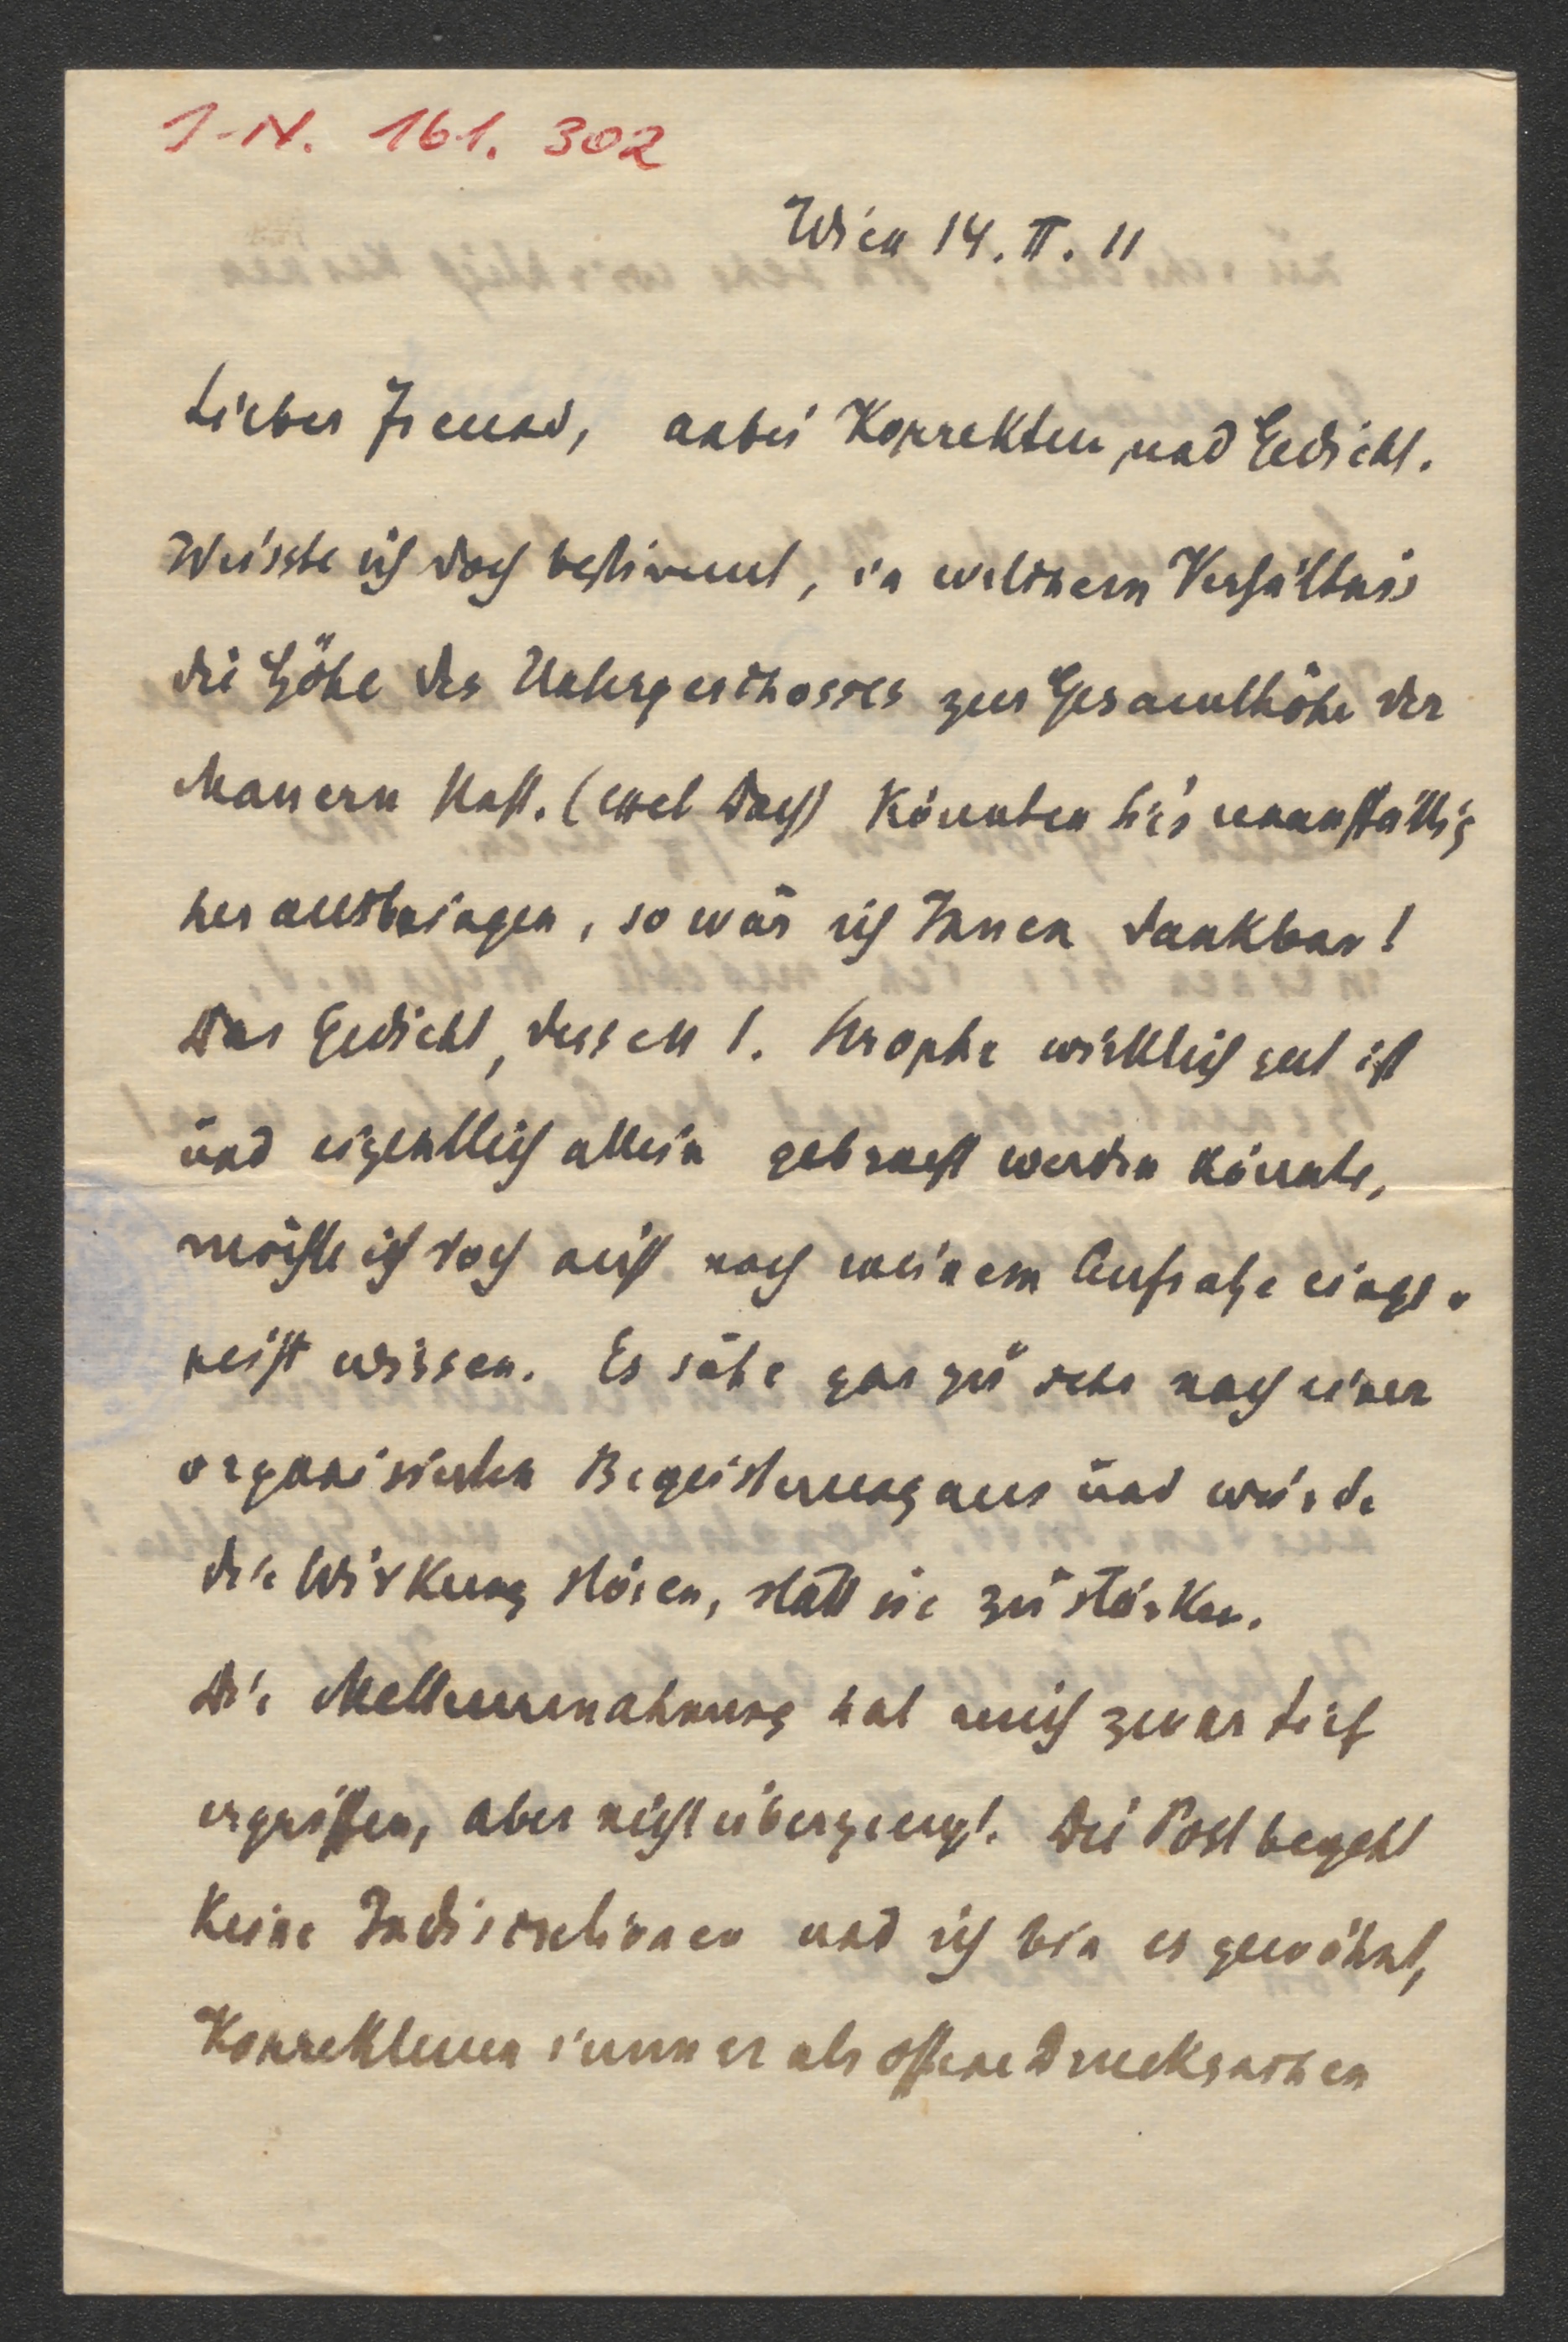 I-N. 161.302
Wien 14. II. 11
Lieber Freund, anbei Korrektur und Gedicht.
Wüsste ich doch bestimmt, in welchem Verhältnis
die Höhe des Untergeschosses zur Gesamthöhe der
Mauern steht. (excl Dach) Könnten Sie's
herausbringen, so wär ich Ihnen dankbar!
Das Gedicht, dessen 1. Strophe wirklich gut ist
und eigentlich allein gebracht werden könnte,
möchte ich doch nicht nach meinem Aufsatze einge-
reiht wissen. Es sähe gar zu sehr nach einer
organisierten Begeisterung aus und würde
die Wirkung stören, statt sie zu stärken.
Die hat mich zwar tief
ergriffen, aber nicht überzeugt. Die Post begeht
keine Indiscretionen und ich bin es gewöhnt,
Korrekturen immer als offene Drucksachen